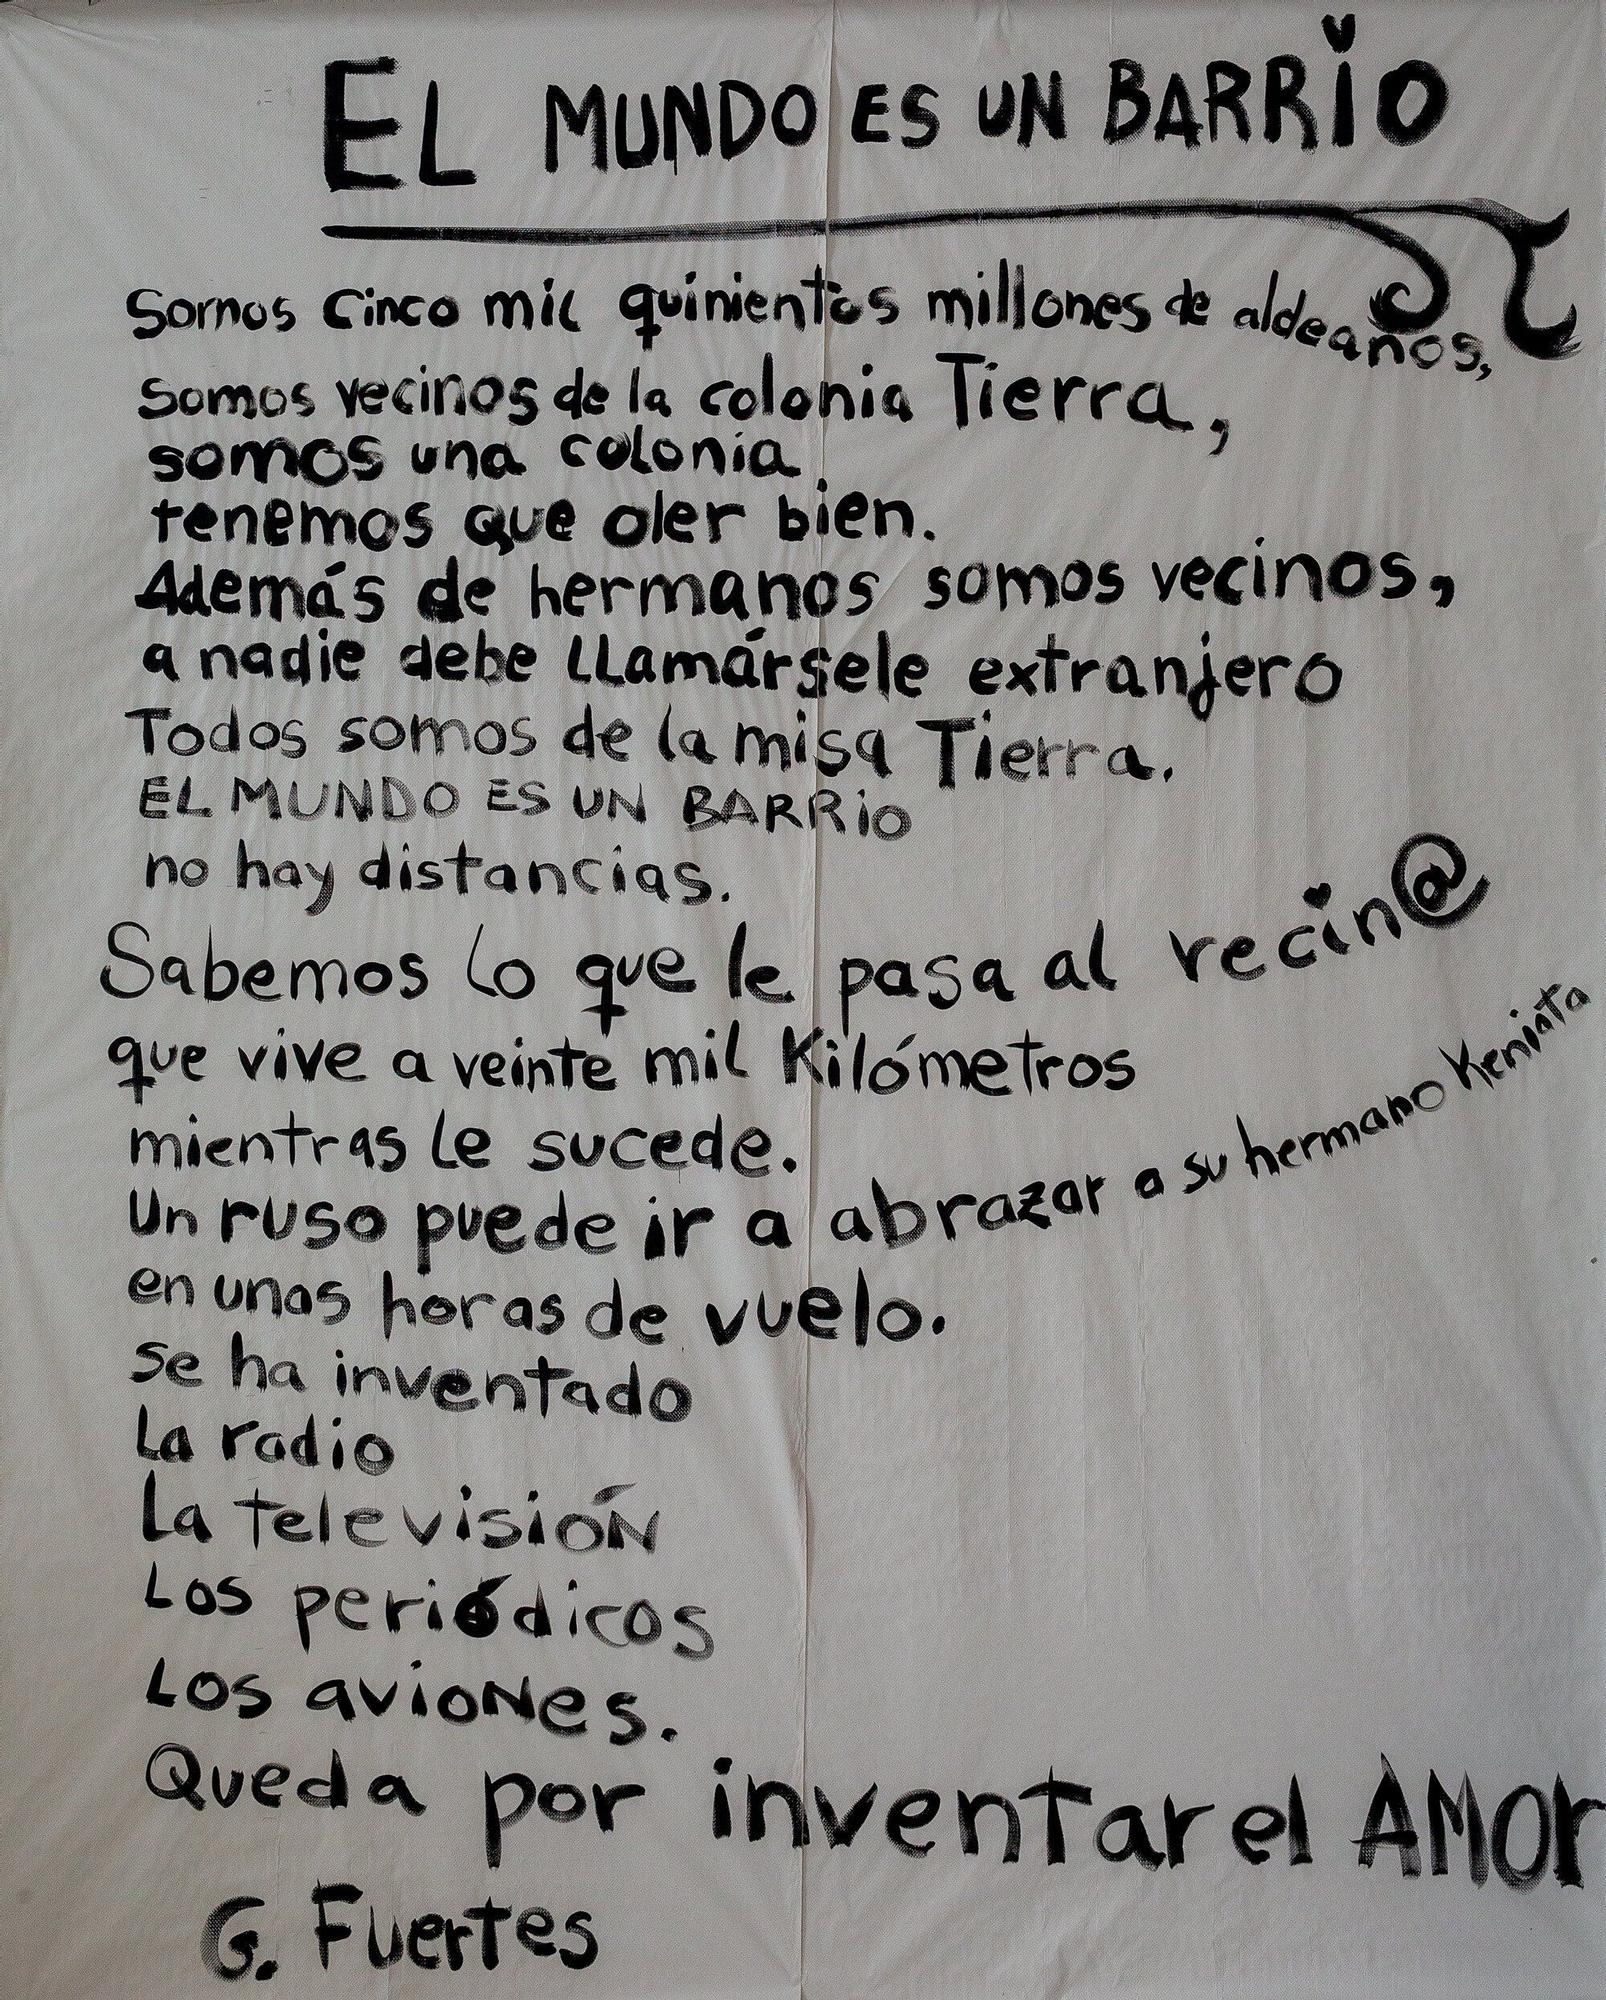 EL MUNDO ES UN BARRIO
Somos cinco mil quinientos millones de aldeanos,
somos vecinos de la colonia Tierra,
somos una colonia
tenemos que oler bien.
Además de hermanos somos vecinos,
a nadie debe llamársele extranjero
Todos somos de la misa Tierra.
EL MUNDO ES UN BARRIO
no hay distancias.
Sabemos lo que le pasa al vecin@
que vive a veinte mil Kilómetros
mientras le sucede.
Un ruso puede ir a abrazar a su hermano Keniata
en unas horas de vuelo.
se ha inventado
La radio
La televisión
Los periódicos
Los aviones.
Queda por inventar el AMOR
G. Fuertes